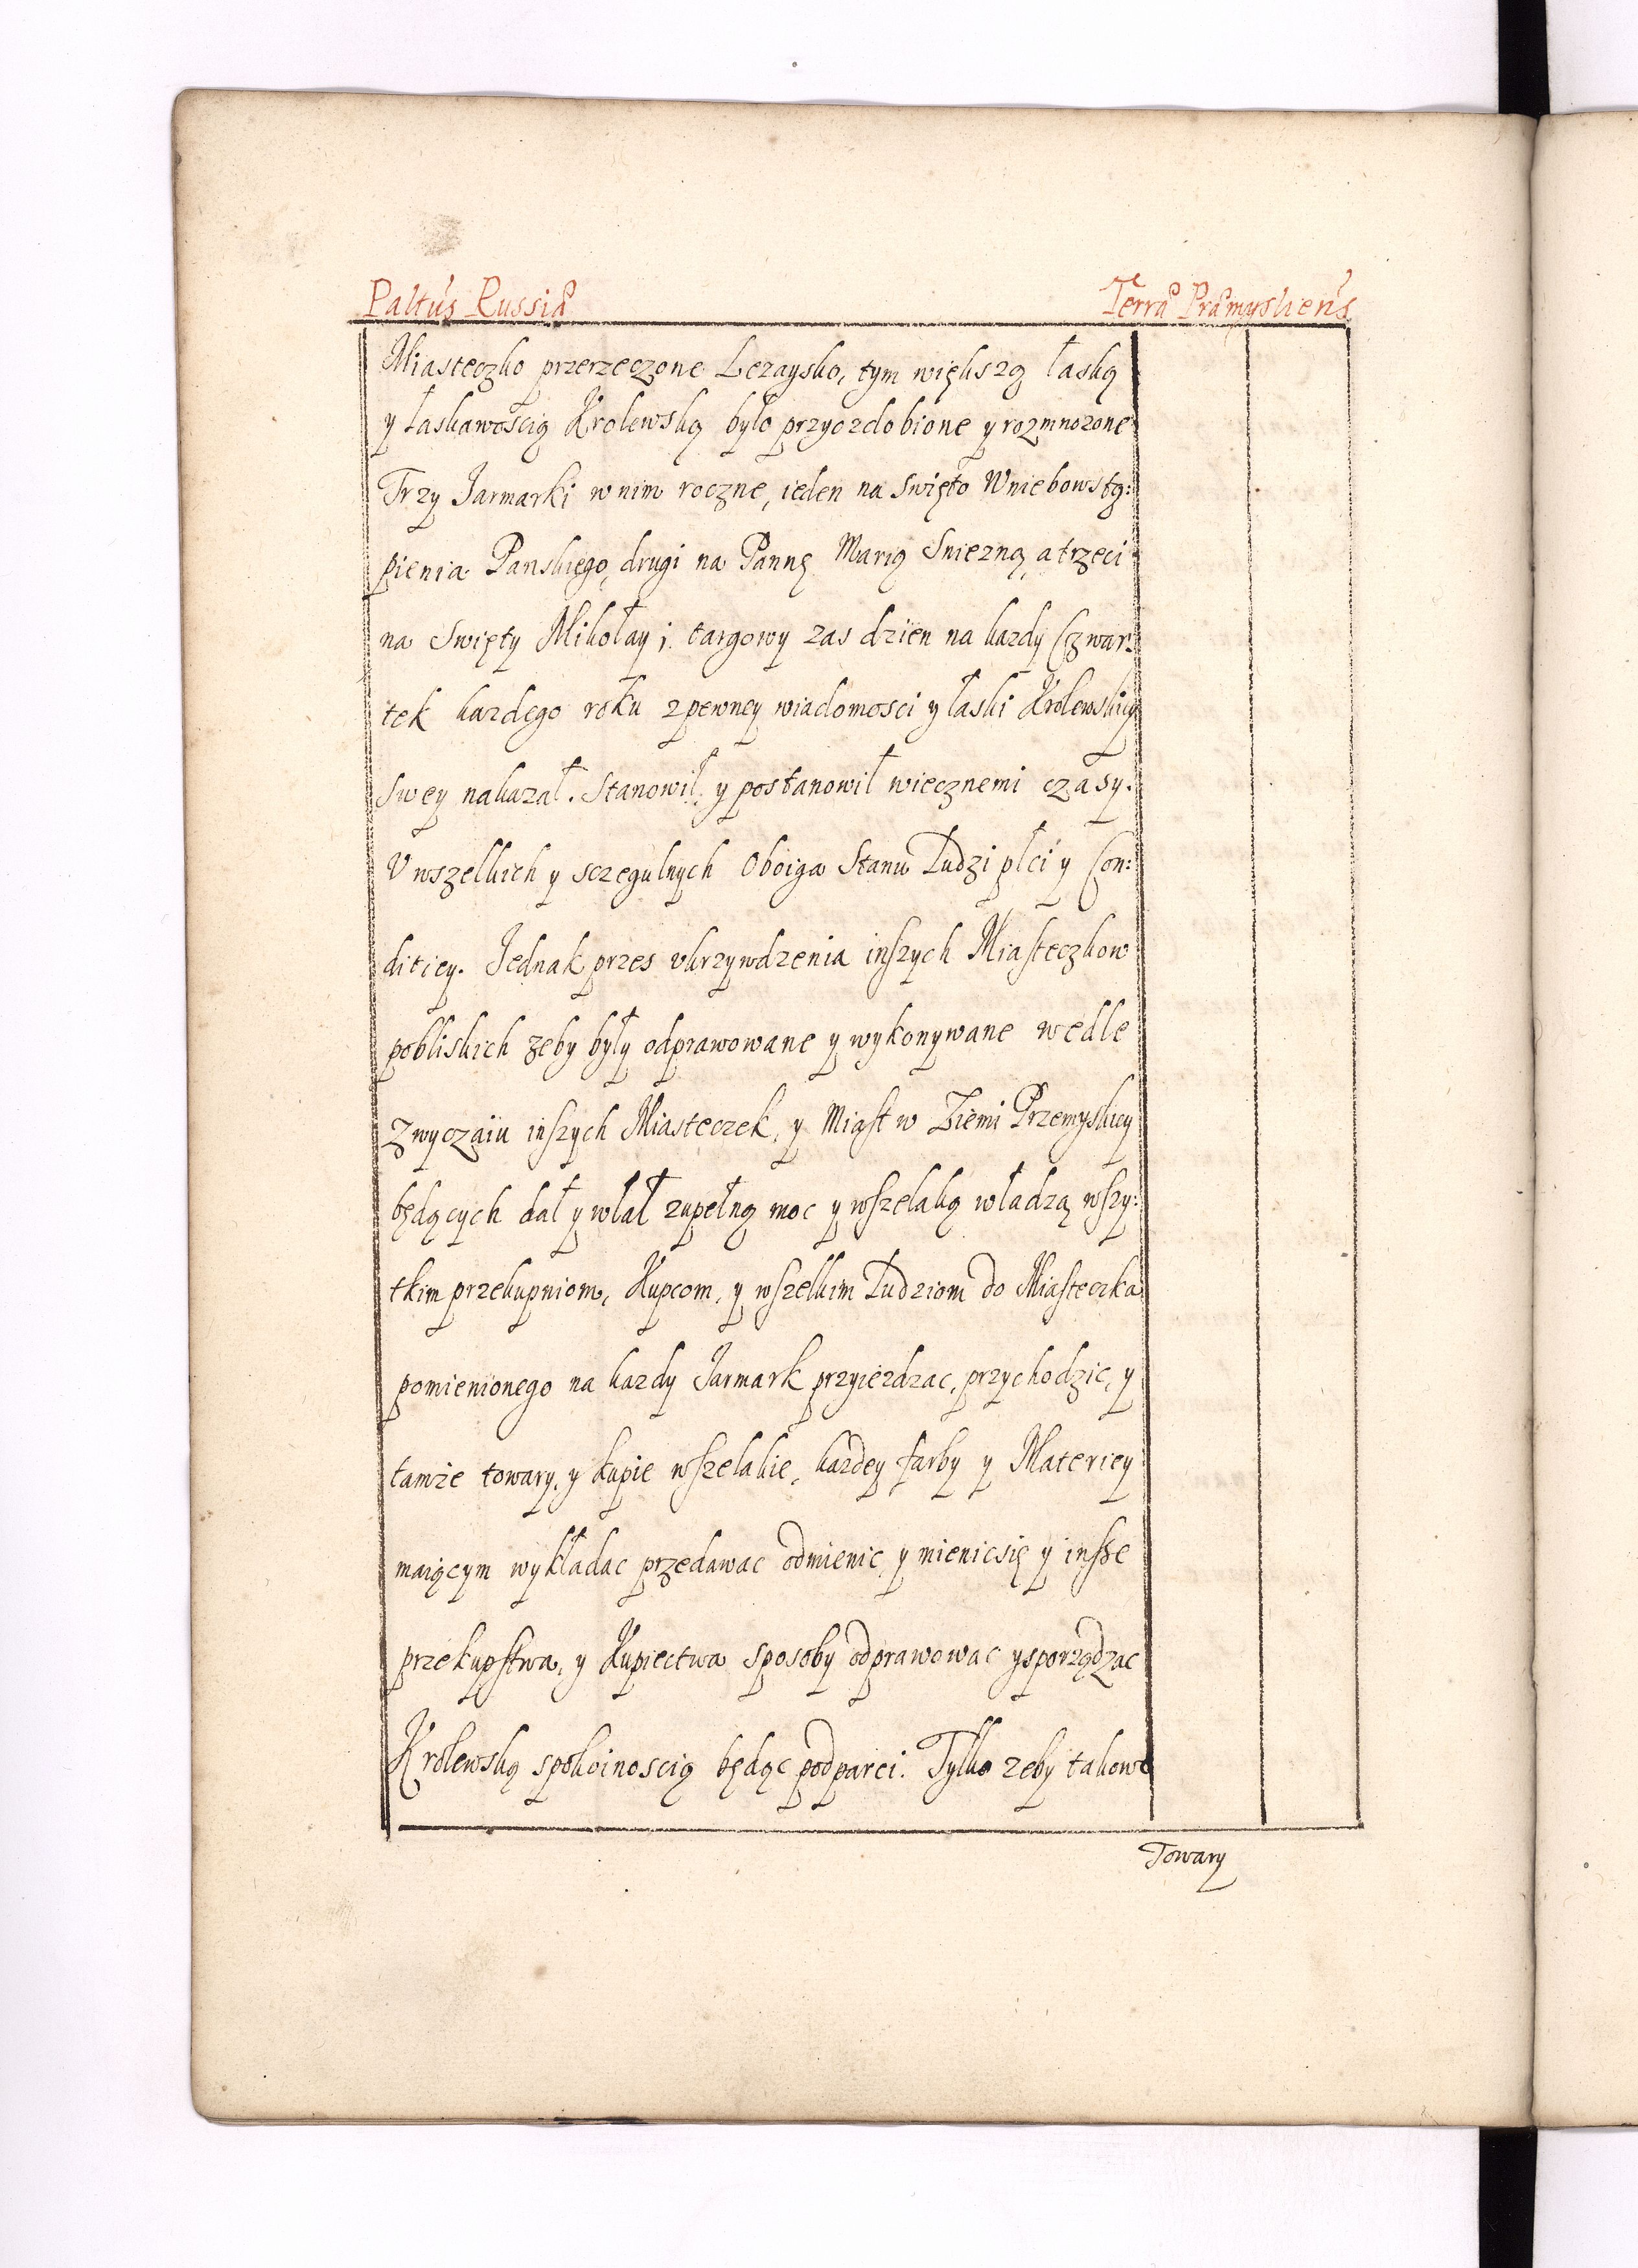 Paltús Russiæ
Terræ Præmysliens
Miasteczko przerzeczone Lezaysko, tym większą łaską
y łaskawością Krolewską było przyozdobione y rozmnozone
Trzy Jarmarki w nim roczne, ieden na Swięto Wniebowstą:
pienia Panskiego, drugi na Pannę Marią Sniezną, a trzeci
na Swięty Mikołay; targowy zas dzien na kazdy Czwar:
tek kazdego roku z pewney wiadomosci y łaski Krolewskiey
swey nakazał. Stanowił, y postanowił wiecznemi czasy.
V wszelkich y sczegulnych Oboiga Stanu Ludzi płci y Con:
ditiey. Jednak przes vkrzywdzenia inszych Miasteczkow
pobliskich zeby były odprawowane y wykonywane wedle
Zwyczaiu inszych Miasteczek, y Miast w Ziemi Przemyskiey
będących dał y wlał zupełną moc y wszelaką władzą wszy:
tkim przekupniom, Kupcom, y wszelkim Ludziom do Miasteczka
pomienionego na kazdy Jarmark przyiezdzac, przychodzic, y
tamze towary, y kupie wszelakie, kazdey farby y Materiey
maiącym wykładac przedawac odmienic, y mienic się y insze
przekupstwa, y Kupiectwa sposoby odprawowac y sporządzac
Krolewską spokoinoscią będąc podparci. Tylko zeby takowe
Towary